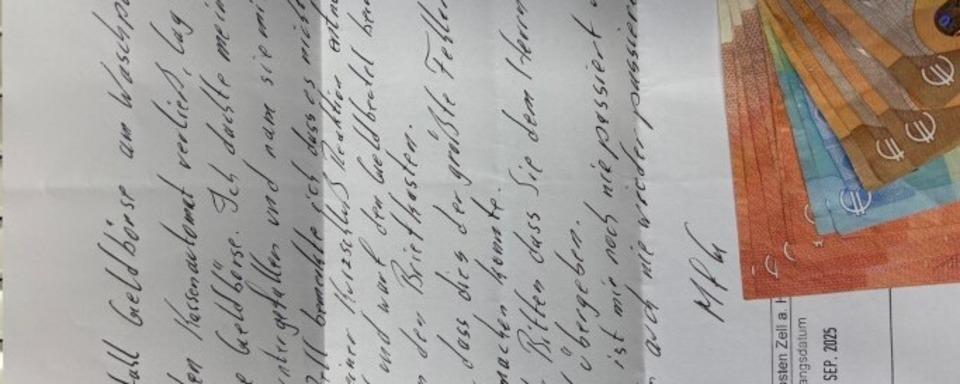 Geldbörse am Waschp
Kassenautomat verließ, lag
Geldbörse. Ich dachte mein
untergefallen und nam sie mi
bemerkte ich dass es nicht
einer Kurzschluß Reaktion
und warf den Geldbeutel
den Briefkasten.
dass dies der größte Fehler
machen konnte.
Bitten dass Sie dem Herrn
übergeben.
ist mir noch nie passiert
auch nie wieder passieren
MfG
€
€
€
€
sten Zell a. H
angsdatum
SEP. 2025